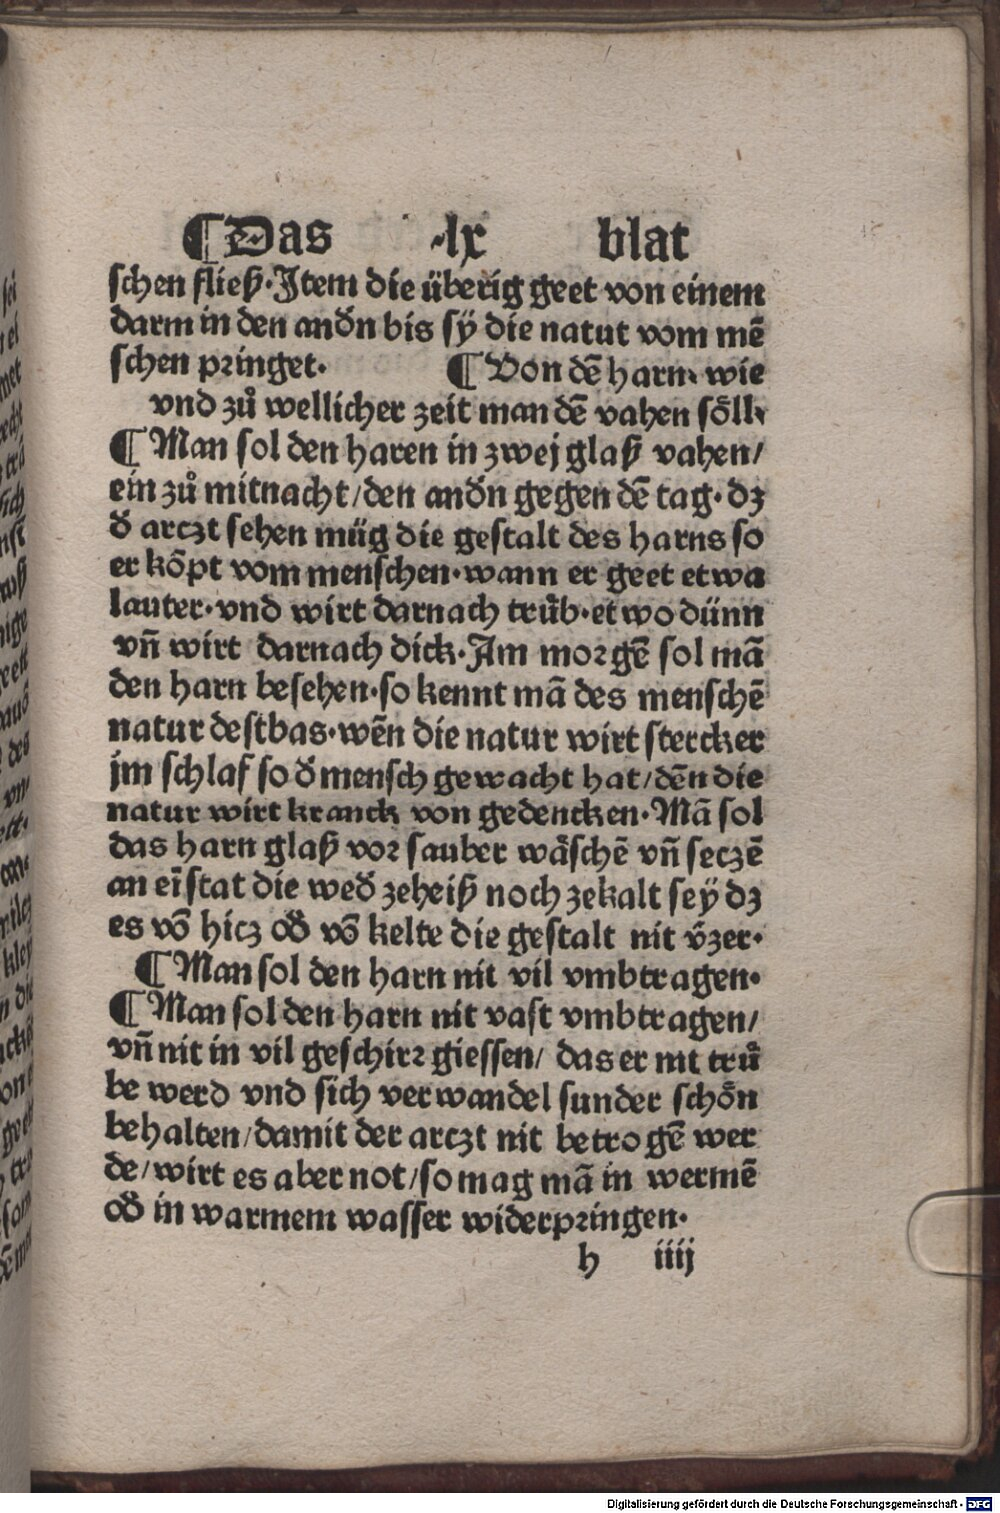 ¶ Das ·lx blat
schen fließ·Item die überig geet von einem
darm in den andn̄ bis sÿ die natut vom mē
schen pringet· ¶ Von dē harn· wie
vnd zů wellicher zeit man dē vahen soͤll·
¶ Man sol den haren in zwej glaß vahen/
ein zů mitnacht/den andn̄ gegen dē tag· dz
đ arczt sehen müg die gestalt des harns so
er kōpt vom menschen·wann er geet etwa
lauter·vnd wirt darnach truͤb·etwo dünn
vn̄ wirt darnach dick·Am morgē sol mā
den harn besehen·so kennt mā des menschē
natur destbas·wēn die natur wirt stercker
jm schlaf so đ mensch gewacht hat/dēn die
natur wirt kranck von gedencken·Mā sol
das harn glaß vor sauber waͤschē vn̄ seczē
an eīstat die weđ zeheiß noch zekalt seÿ dz
es vō hicz ođ vō kelte die gestalt nit v̄zer·
¶ Man sol den harn nit vil vmbtragen·
¶ Man sol den harn nit vast vmbtragen/
vn̄ nit in vil geschirr giessen/ das er nit truͤ
be werd vnd sich verwandel sunder schoͤn
behalten/damit der arczt nit betrogē wer
de/wirt es aber not/so mag mā in wermē
ođ in warmem wasser widerpringen·
h iiij
Digitalisierung gefördert durch die Deutsche Forschungsgemeinschaft - DFG